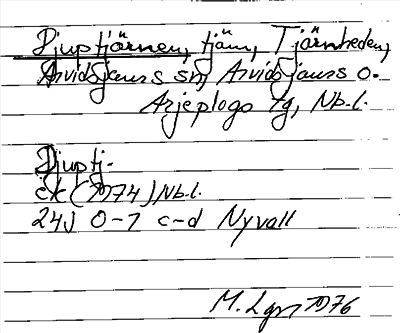 Djuptjärnen, tjärn, Tjärnheden,
Arvidsjaurs sn, Arvidsjaurs o.
Arjeplogs tg, Nb.l.
Djuptj-
ek (1974) Nb.l.
24J 0-1 c-d Nyvall
M. Lgn 1976